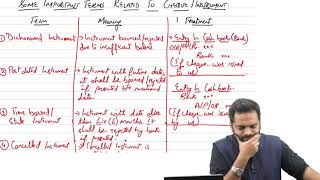 Some Important Terms Related To Cheque/Instrument:
Term Meaning Treatment
① Dishonoured Instrument → Instrument bounced/rejected due to insufficient balance.
→ Entry In Cash book (Bank)
Bank xxx
(If cheque was issued to us)
② Post dated Instrument → Instrument with future date, it shall be bounced/rejected if presented b/f mentioned date.
Entry In Cash book.
Bank xxx
A/P/OP xxx
(If cheque was issued by us)
③ Time barred/
Stale Instrument
→ Instrument with date older than 6(six) months. It shall be rejected by bank if presented
④ Cancelled Instrument → Cancelled Instrument is